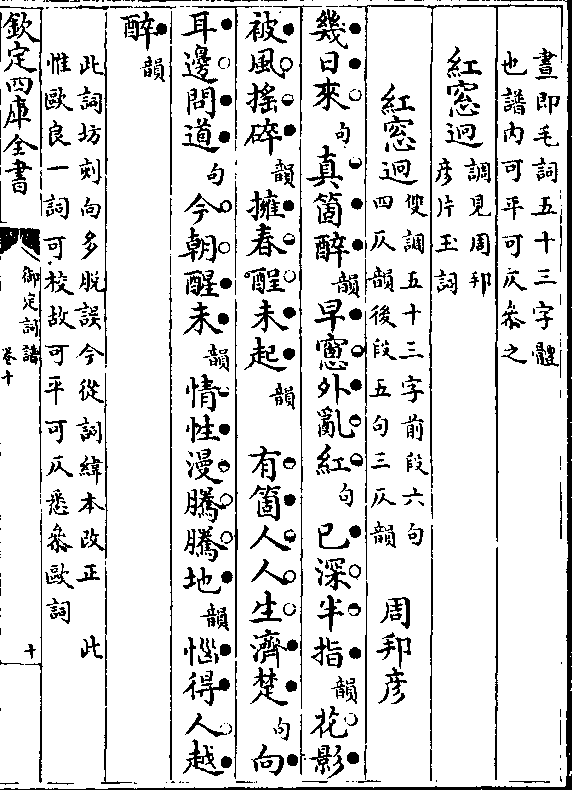 晝即毛詞五十三字體
也譜內可平可仄叅之
紅窓迥調見周邦
彦片玉詞
紅窓迥雙調五十三字前段六句
四仄韻後段五句三仄韻 周邦彦
幾日來句真箇醉韻早窻外亂紅句已深半指韻花影
被風搖碎韻擁春酲未起韻 有箇人人生濟楚句向
耳邊問道句今朝醒未韻情性漫騰騰地韻惱得人越
醉韻
此詞坊刻向多脫誤今從詞緯本改正 此
惟歐良一詞可校故可平可仄悉叅歐詞
欽定四庫全書
御定詞譜
卷十
十